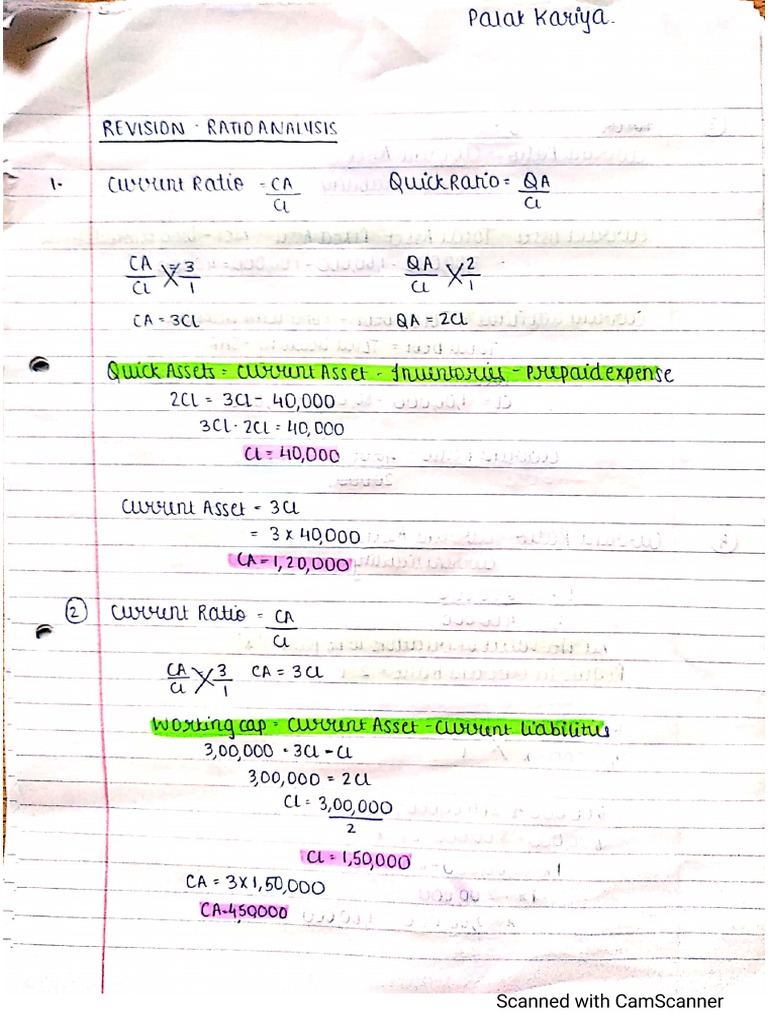 Palak Kariya.
REVISION - RATIO ANALYSIS
1. Current Ratio = CA Quick Ratio = QA
CL CL
CA = 3 QA 2
CL 1 CL 1
CA = 3CL QA = 2CL
Quick Assets = Current Asset - Inventories - Prepaid expense
2CL = 3CL - 40,000
3CL - 2CL = 40,000
CL = 40,000
Current Asset = 3CL
= 3 x 40,000
CA = 1,20,000
2 Current Ratio = CA
CL
CA 3 CA = 3CL
CL 1
Working cap = Current Asset - Current liabilities
3,00,000 = 3CL - CL
3,00,000 = 2CL
CL = 3,00,000
2
CL = 1,50,000
CA = 3 x 1,50,000
CA = 4,50,000
Scanned with CamScanner